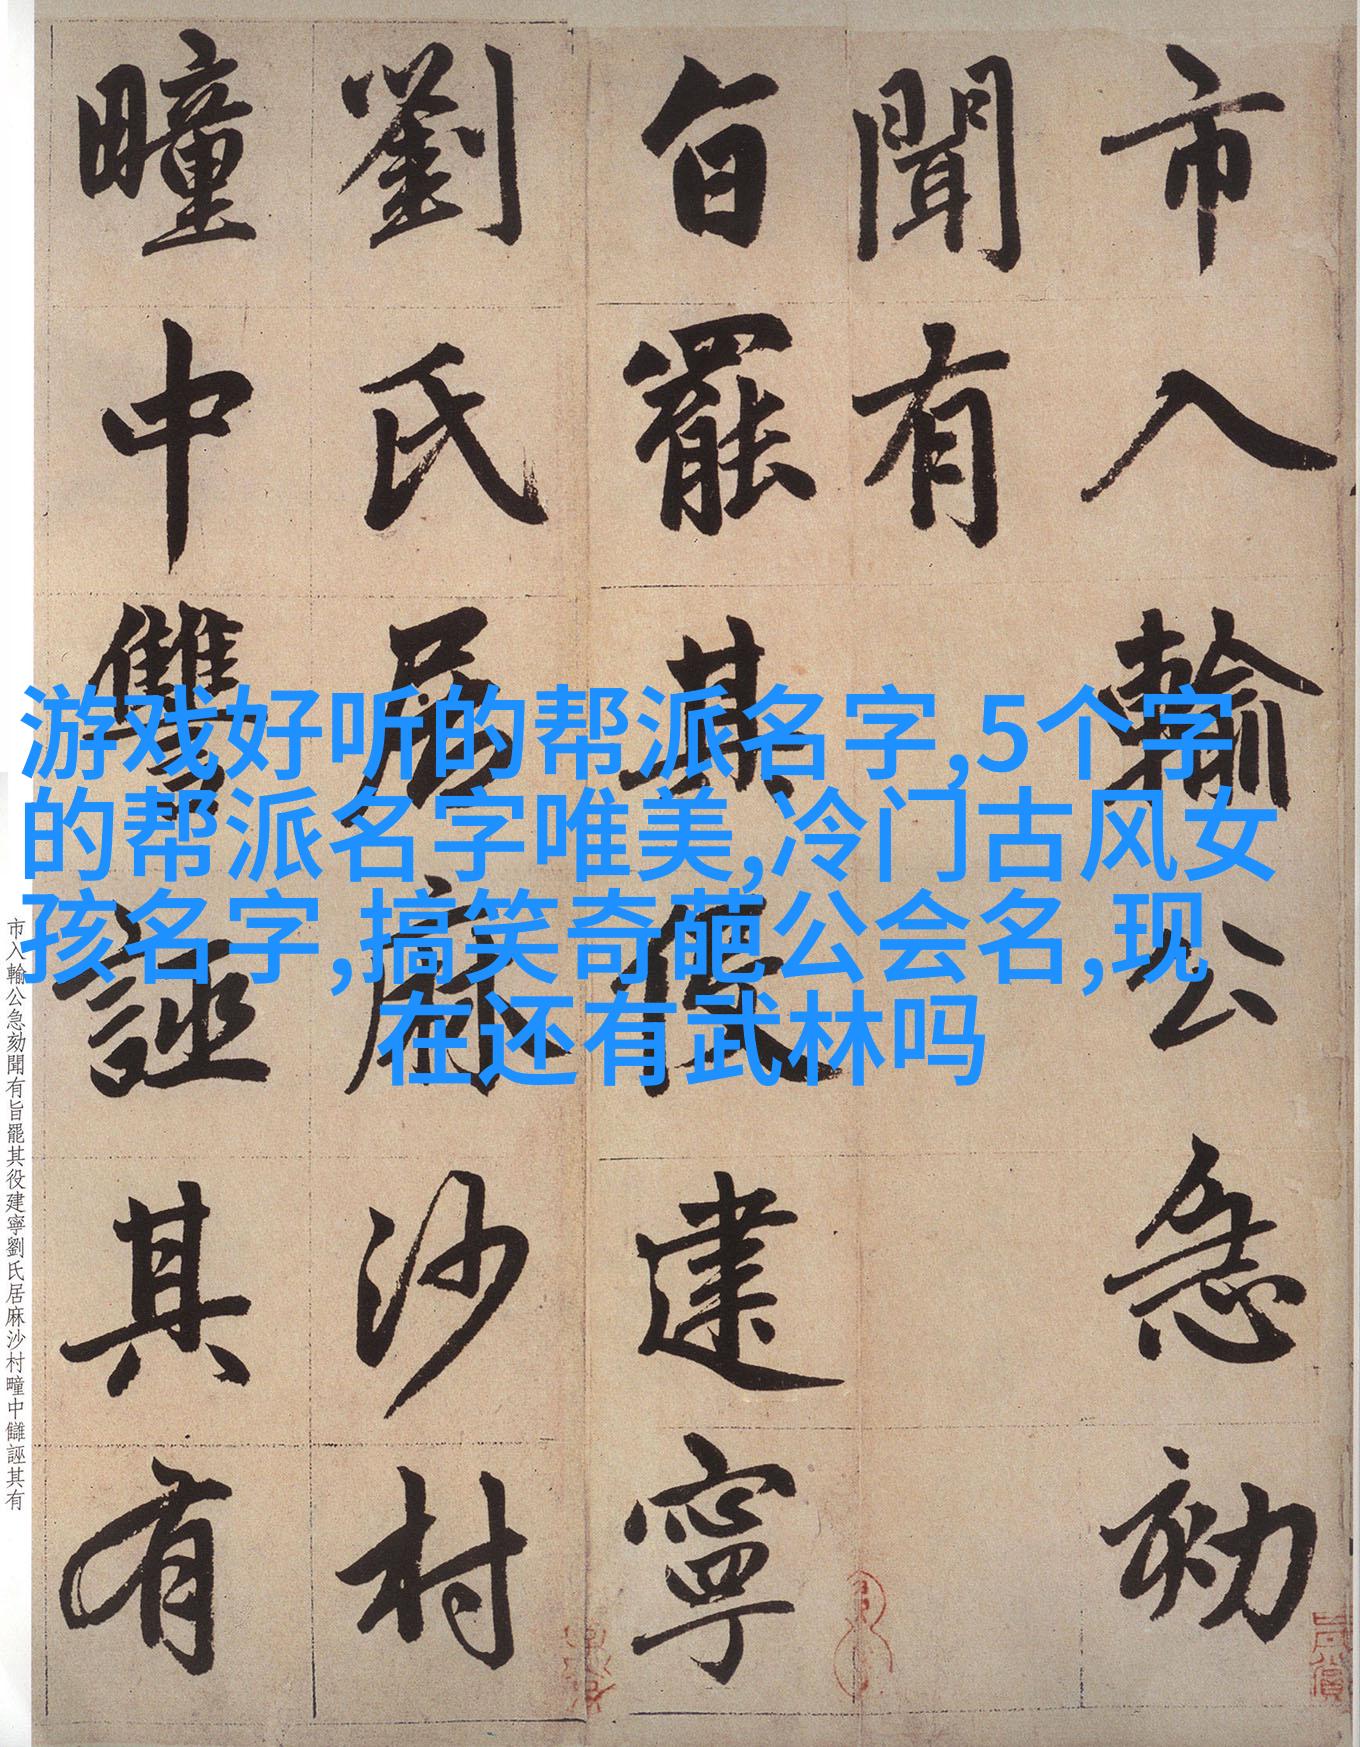 市入輸公急劾
聞有
旨罷其役建寧
劉氏居麻沙村
疃中讐誣其有
游戏好听的帮派名字,5个字
的帮派名字唯美,冷门古风女
孩名字,搞笑奇葩公会名,现
在还有武林吗
市入輸公急劾聞有旨罷其役建寧劉氏居麻沙村疃中讎誣其有